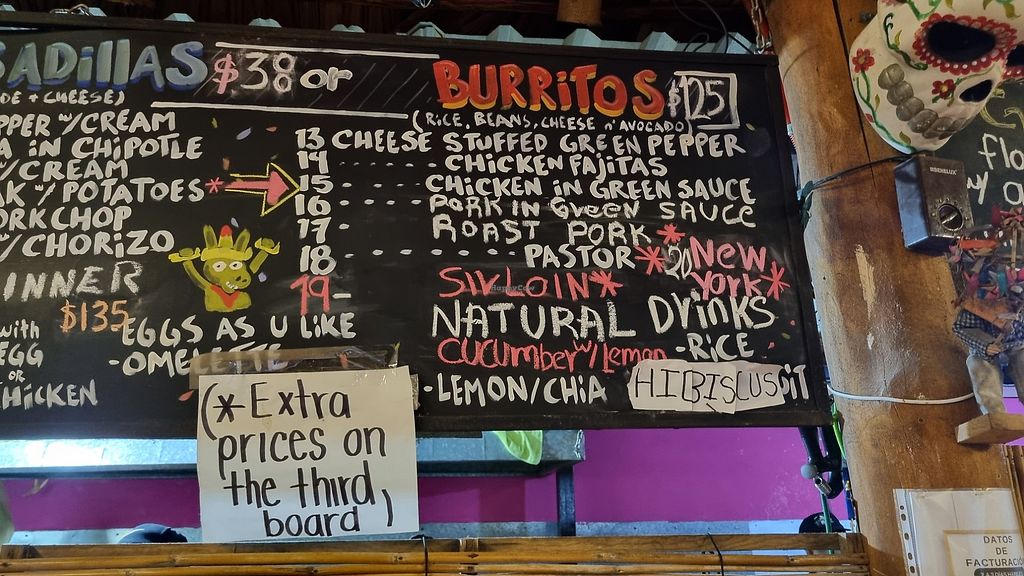 SADILLAS $38 or
DE + CHEESE)
PPER W/ CREAM
A IN CHIPOTLE
W/CREAM
AK W/ POTATOES *
ORKCHOP
W/ CHORIZO
INNER
$135
with
EGG
OR
CHICKEN
EGGS AS U LIKE
-OMELETTE
BURRITOS $125
(RICE, BEANS, CHEESE n' AVOCADO)
13 CHEESE STUFFED GREEN PEPPER
14 CHICKEN FAJITAS
15 CHICKEN IN GREEN SAUCE
16 PORK IN GREEN SAUCE
17 ROAST PORK
18 PASTOR
19- SIRLOIN*
*20 NEW YORK*
NATURAL DRINKS
CUCUMBER W/ Lemon -RICE
-LEMON/CHIA HIBISCUS
(*Extra
prices on
the third
board)
HappyCow
BENELUX
flo
w/
DATOS
DE
FACTURACIÓ